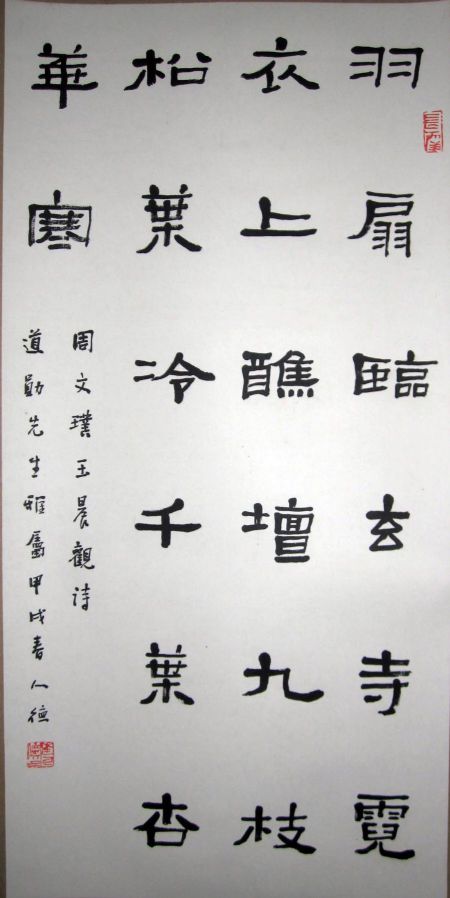 羽扇臨玄寺霓
衣上醮壇九枝
松葉冷千葉杏
華寒
周文璞玉晨觀詩
道勛先生雅屬甲戌春人德